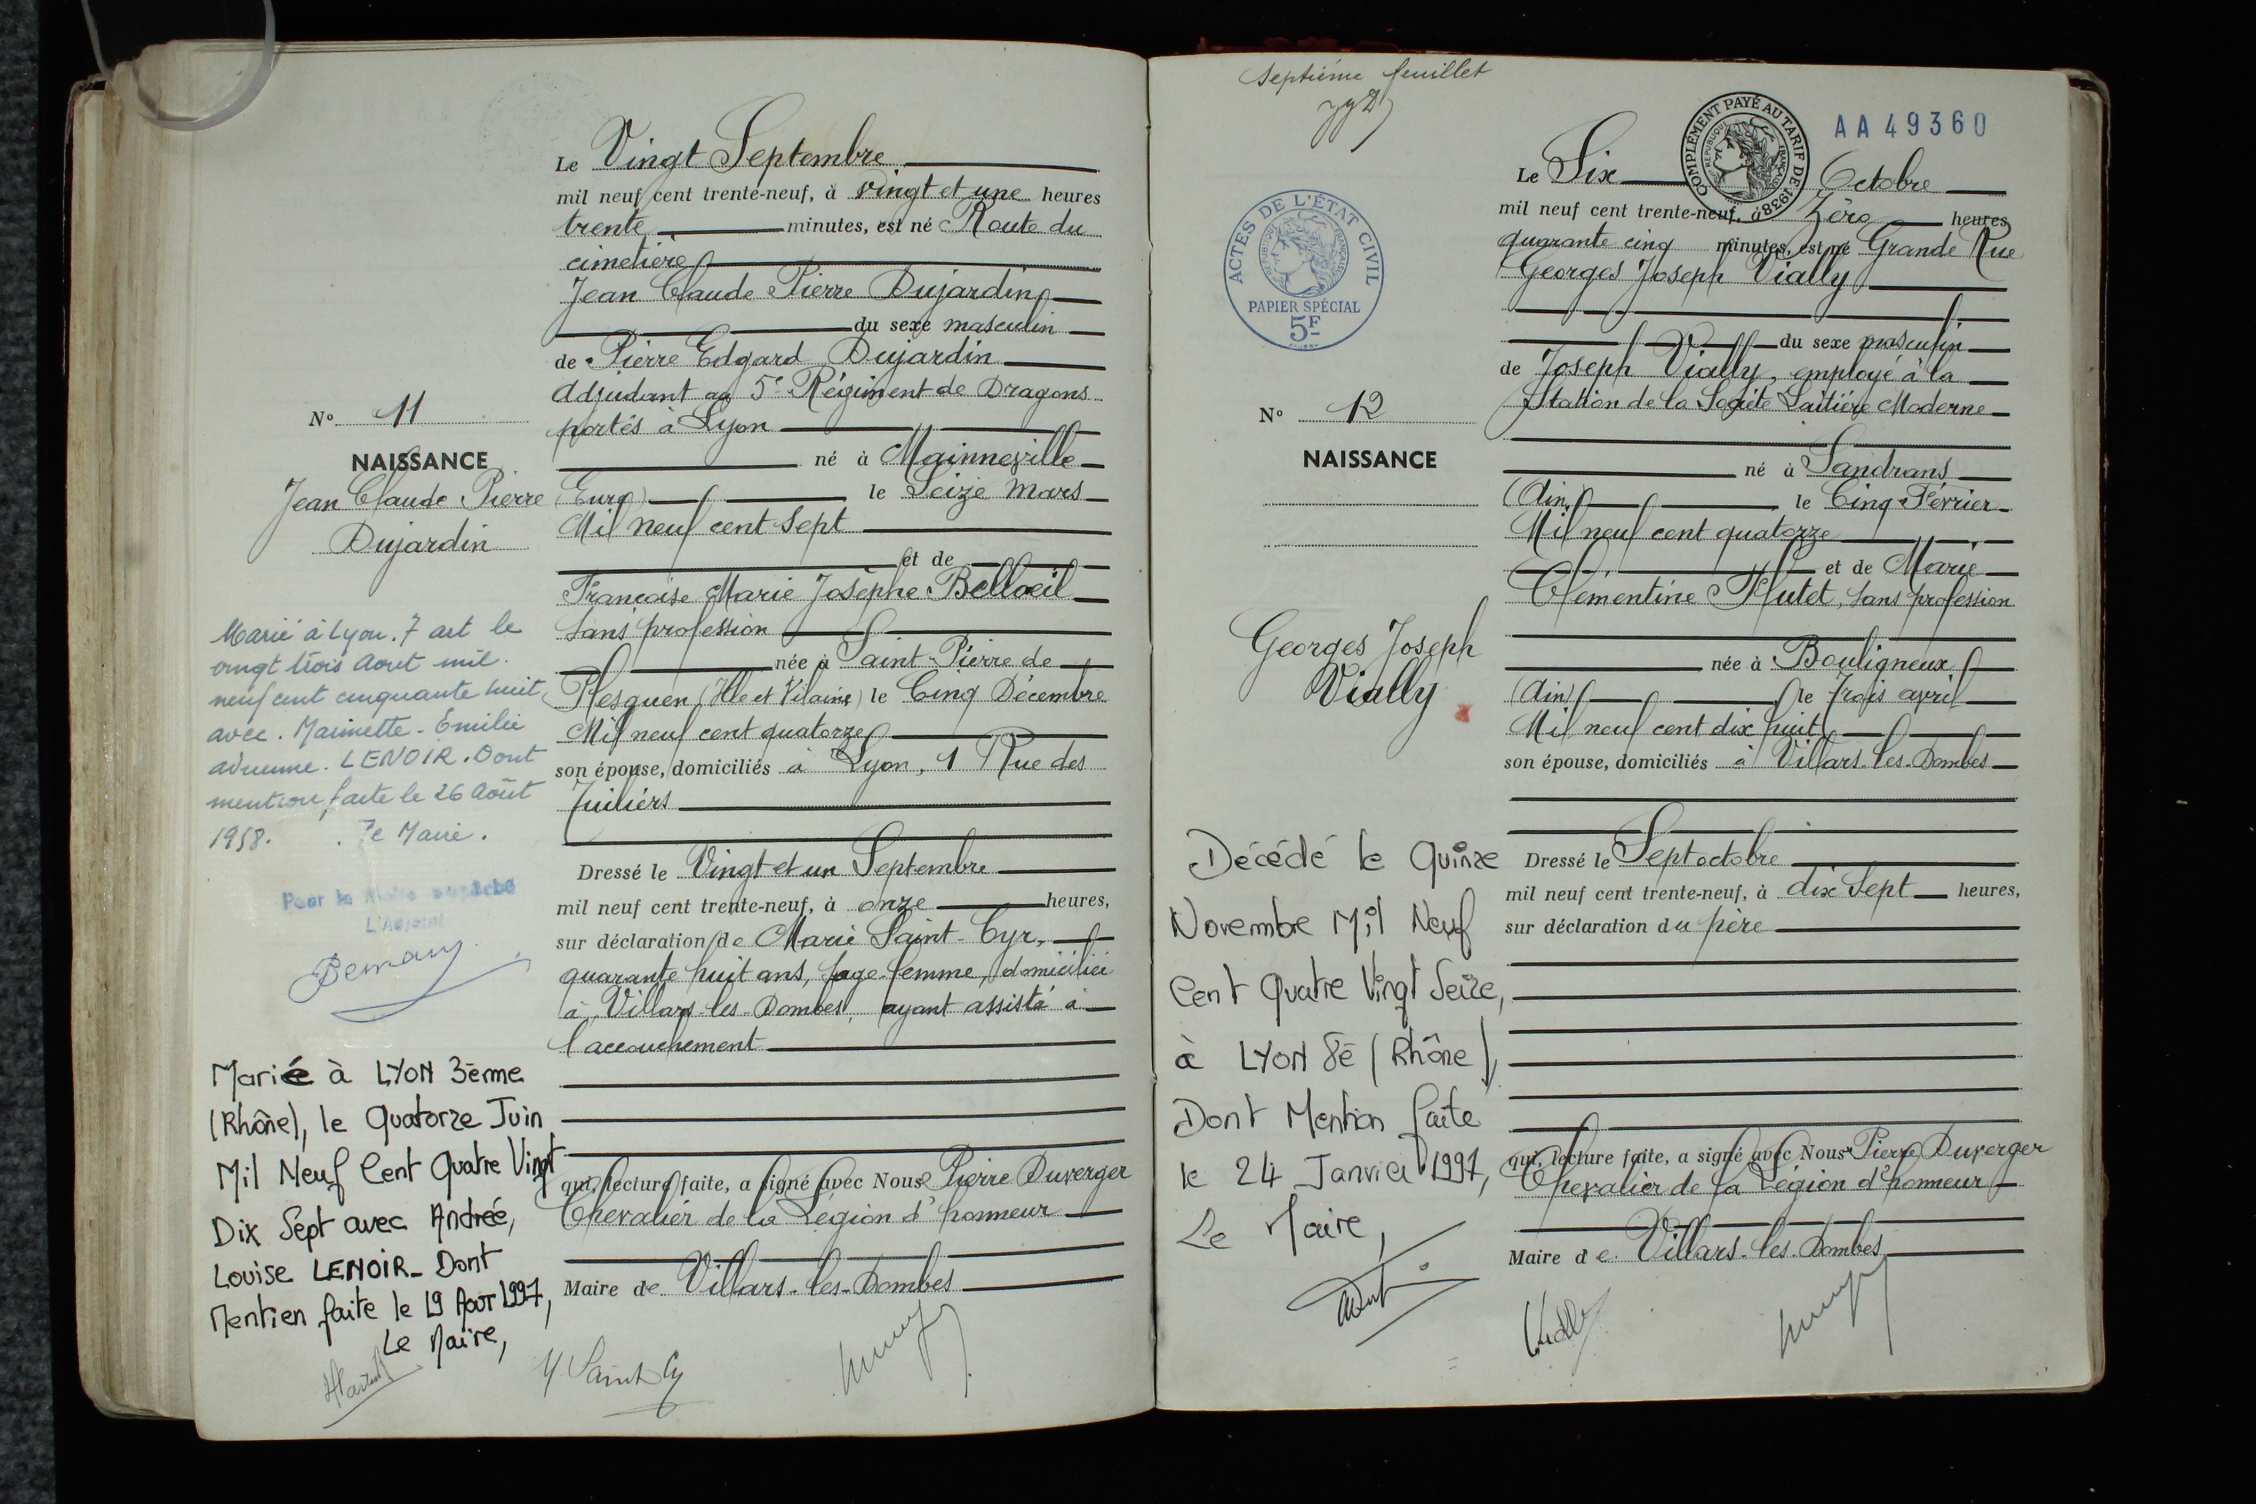 Le Vingt Septembre
mil neuf cent trente-neuf, à vingt et une heures
trente minutes, est né Route du
cimetière
Jean Claude Pierre Dujardin
du sexe masculin
de Pierre Edgard Dujardin
Adjudant au 5e Régiment de Dragons
portés à Lyon
né à Mainneville
(Eure) le Seize Mars
Mil neuf cent sept
et de
Françoise Marie Josèphe Belloeil
sans profession
née à Saint-Pierre de
Plesguen (Ille et Vilaine) le Cinq Décembre
Mil neuf cent quatorze
son épouse, domiciliés à Lyon, 1 Rue des
Tuiliers
Dressé le Vingt et un Septembre
mil neuf cent trente-neuf, à onze heures,
sur déclaration de Marie Saint-Cyr,
quarante huit ans, sage-femme, domiciliée
à Villars-les-Dombes, ayant assisté à
l'accouchement
qui, lecture faite, a signé avec Nous Pierre Duverger
Chevalier de la Légion d'honneur
Maire de Villars-les-Dombes
M Saint Cyr
N° 11
NAISSANCE
Jean Claude Pierre
Dujardin
Marié à Lyon. 7 art le
vingt trois Aout mil.
neuf cent cinquante huit,
avec. Marinette-Emilie
adrienne. LENOIR. Dont
mention faite le 26 Août
1958. Le Maire.
Pour le Maire empêché
L'Adjoint
Mariée à LYON 3ème
(Rhône), le Quatorze Juin
Mil Neuf Cent Quatre Vingt
Dix Sept avec Andrée,
Louise LENOIR_ Dont
Mention faite le 19 Août 1997,
Le Maire,
Septième feuillet
COMPLÉMENT PAYÉ AU TARIF DE 1938
RÉPUBLIQUE FRANÇAISE
AA49360
ACTES DE L'ÉTAT CIVIL
RÉPUBLIQUE FRANÇAISE
PAPIER SPÉCIAL
5F
Le Six Octobre
mil neuf cent trente-neuf, à Zéro heures
quarante cinq minutes, est né Grande Rue
Georges Joseph Vially
du sexe masculin
de Joseph Vially, employé à la
Station de la Société Laitière Moderne
né à Sandrans
(Ain) le Cinq Février
Mil neuf cent quatorze
et de Marie
Clémentine Hutet, sans profession
née à Bouligneux
(Ain) le Trois avril
Mil neuf cent dix huit
son épouse, domiciliés à Villars-les-Dombes
Dressé le Sept octobre
mil neuf cent trente-neuf, à dix sept heures,
sur déclaration du père
qui, lecture faite, a signé avec Nous Pierre Duverger
Chevalier de la Légion d'honneur
Maire de Villars-les-Dombes
Vially
N° 12
NAISSANCE
Georges Joseph
Vially
Décédé le Quinze
Novembre Mil Neuf
Cent Quatre Vingt Seize,
à LYON 8è (Rhône),
Dont Mention faite
le 24 Janvier 1997,
Le Maire,